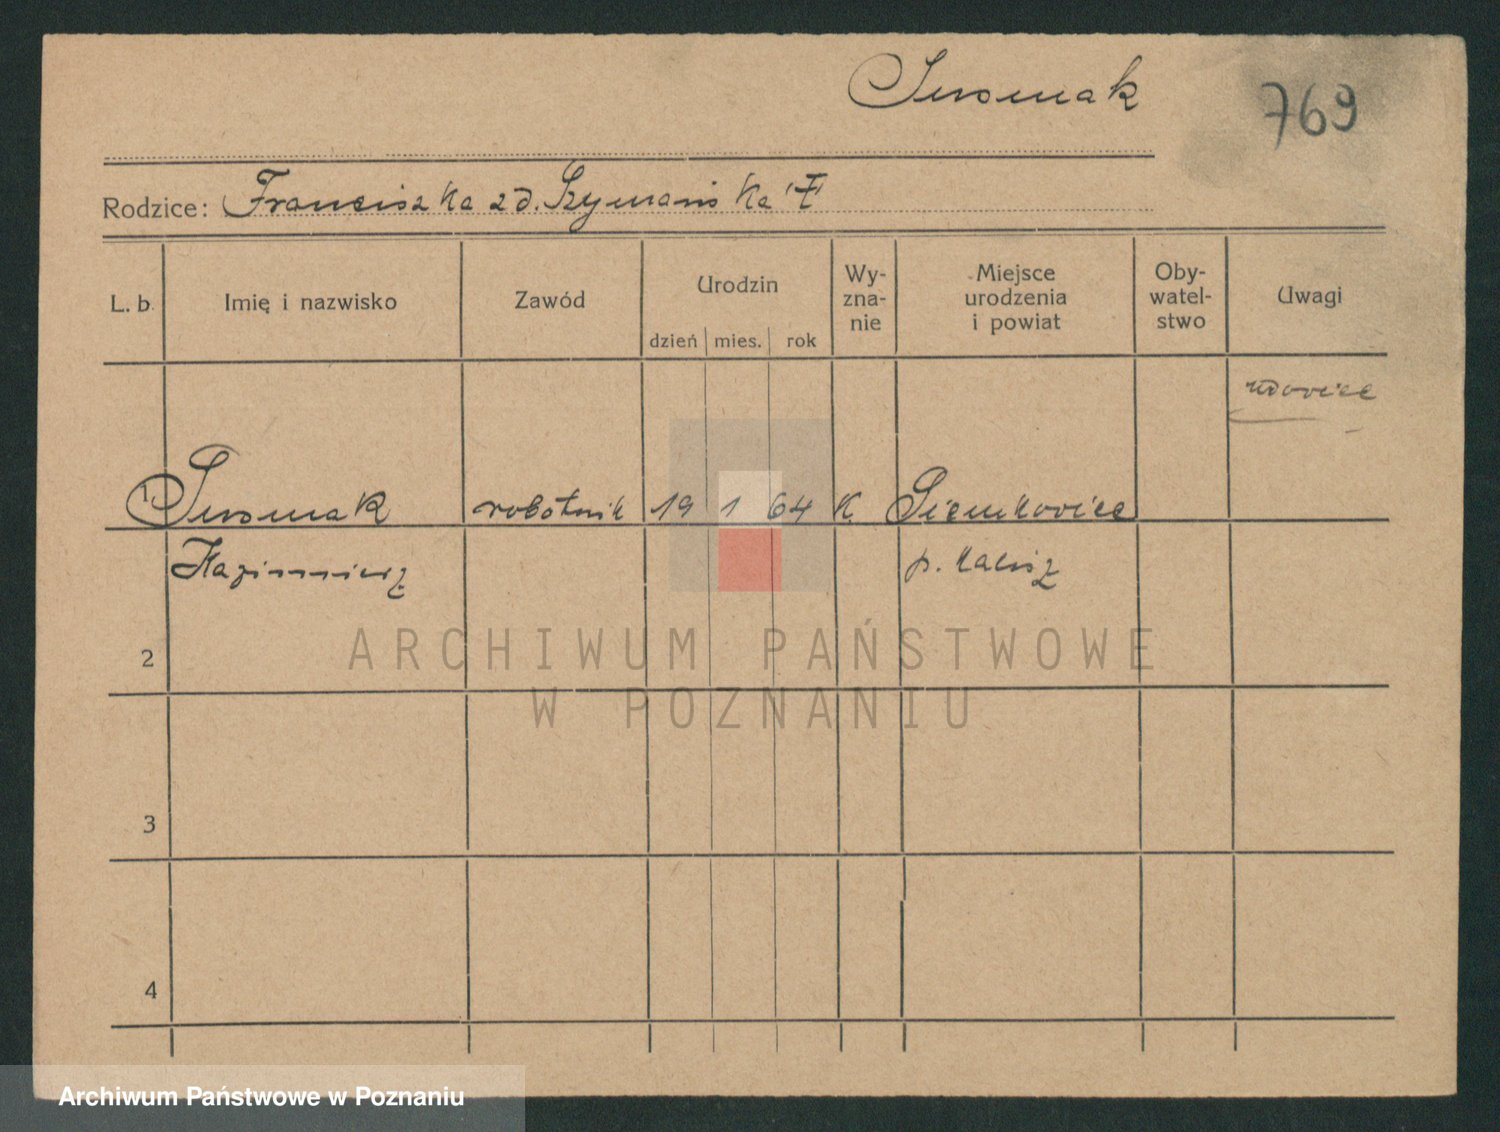 769
Rodzice: Franciszka zd. Szymańska
L. b. Imię i nazwisko Zawód Urodzin dzień mies. rok Wy-
zna-
nie Miejsce
urodzenia
i powiat Oby-
watel-
stwo Uwagi
wdowiec
1 robotnik 19 1 64 K.
Kazimierz p. Kalisz
2
3
4
ARCHIWUM PAŃSTWOWE
W POZNANIU
Archiwum Państwowe w Poznaniu